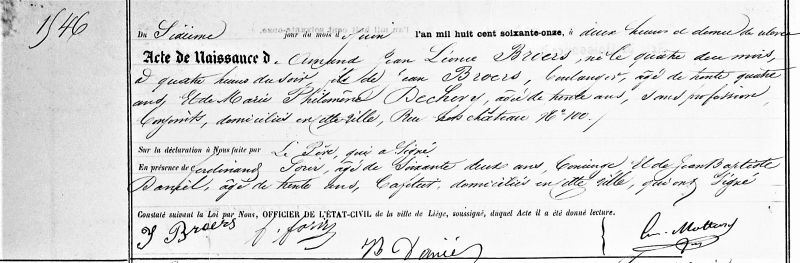 1546
Du Sixième jour du mois d Juin l'an mil huit cent soixante-onze, à deux heures et demie de relevée
Acte de Naissance d Armand Jean Léonce Broers, né le quatre deu mois,
à quatre heures du soir, fils de Jean Broers, boulanger, âgé de trente quatre
ans, Et de Marie Philomène Dechevy, âgée de trente ans, sans profession,
Conjoints, domiciliés en cette ville, Rue château N° 100.
Sur la déclaration à Nous faite par Le Père, qui a Signé
En présence de Ferdinand âgé de Soixante deux ans, Concierge Et de Jean Baptiste
âgé de trente ans, domiciliés en cette ville, qui ont Signé
Constaté suivant la Loi par Nous, OFFICIER DE L'ÉTAT-CIVIL de la ville de Liège, soussigné, duquel Acte il a été donné lecture.
J Broers